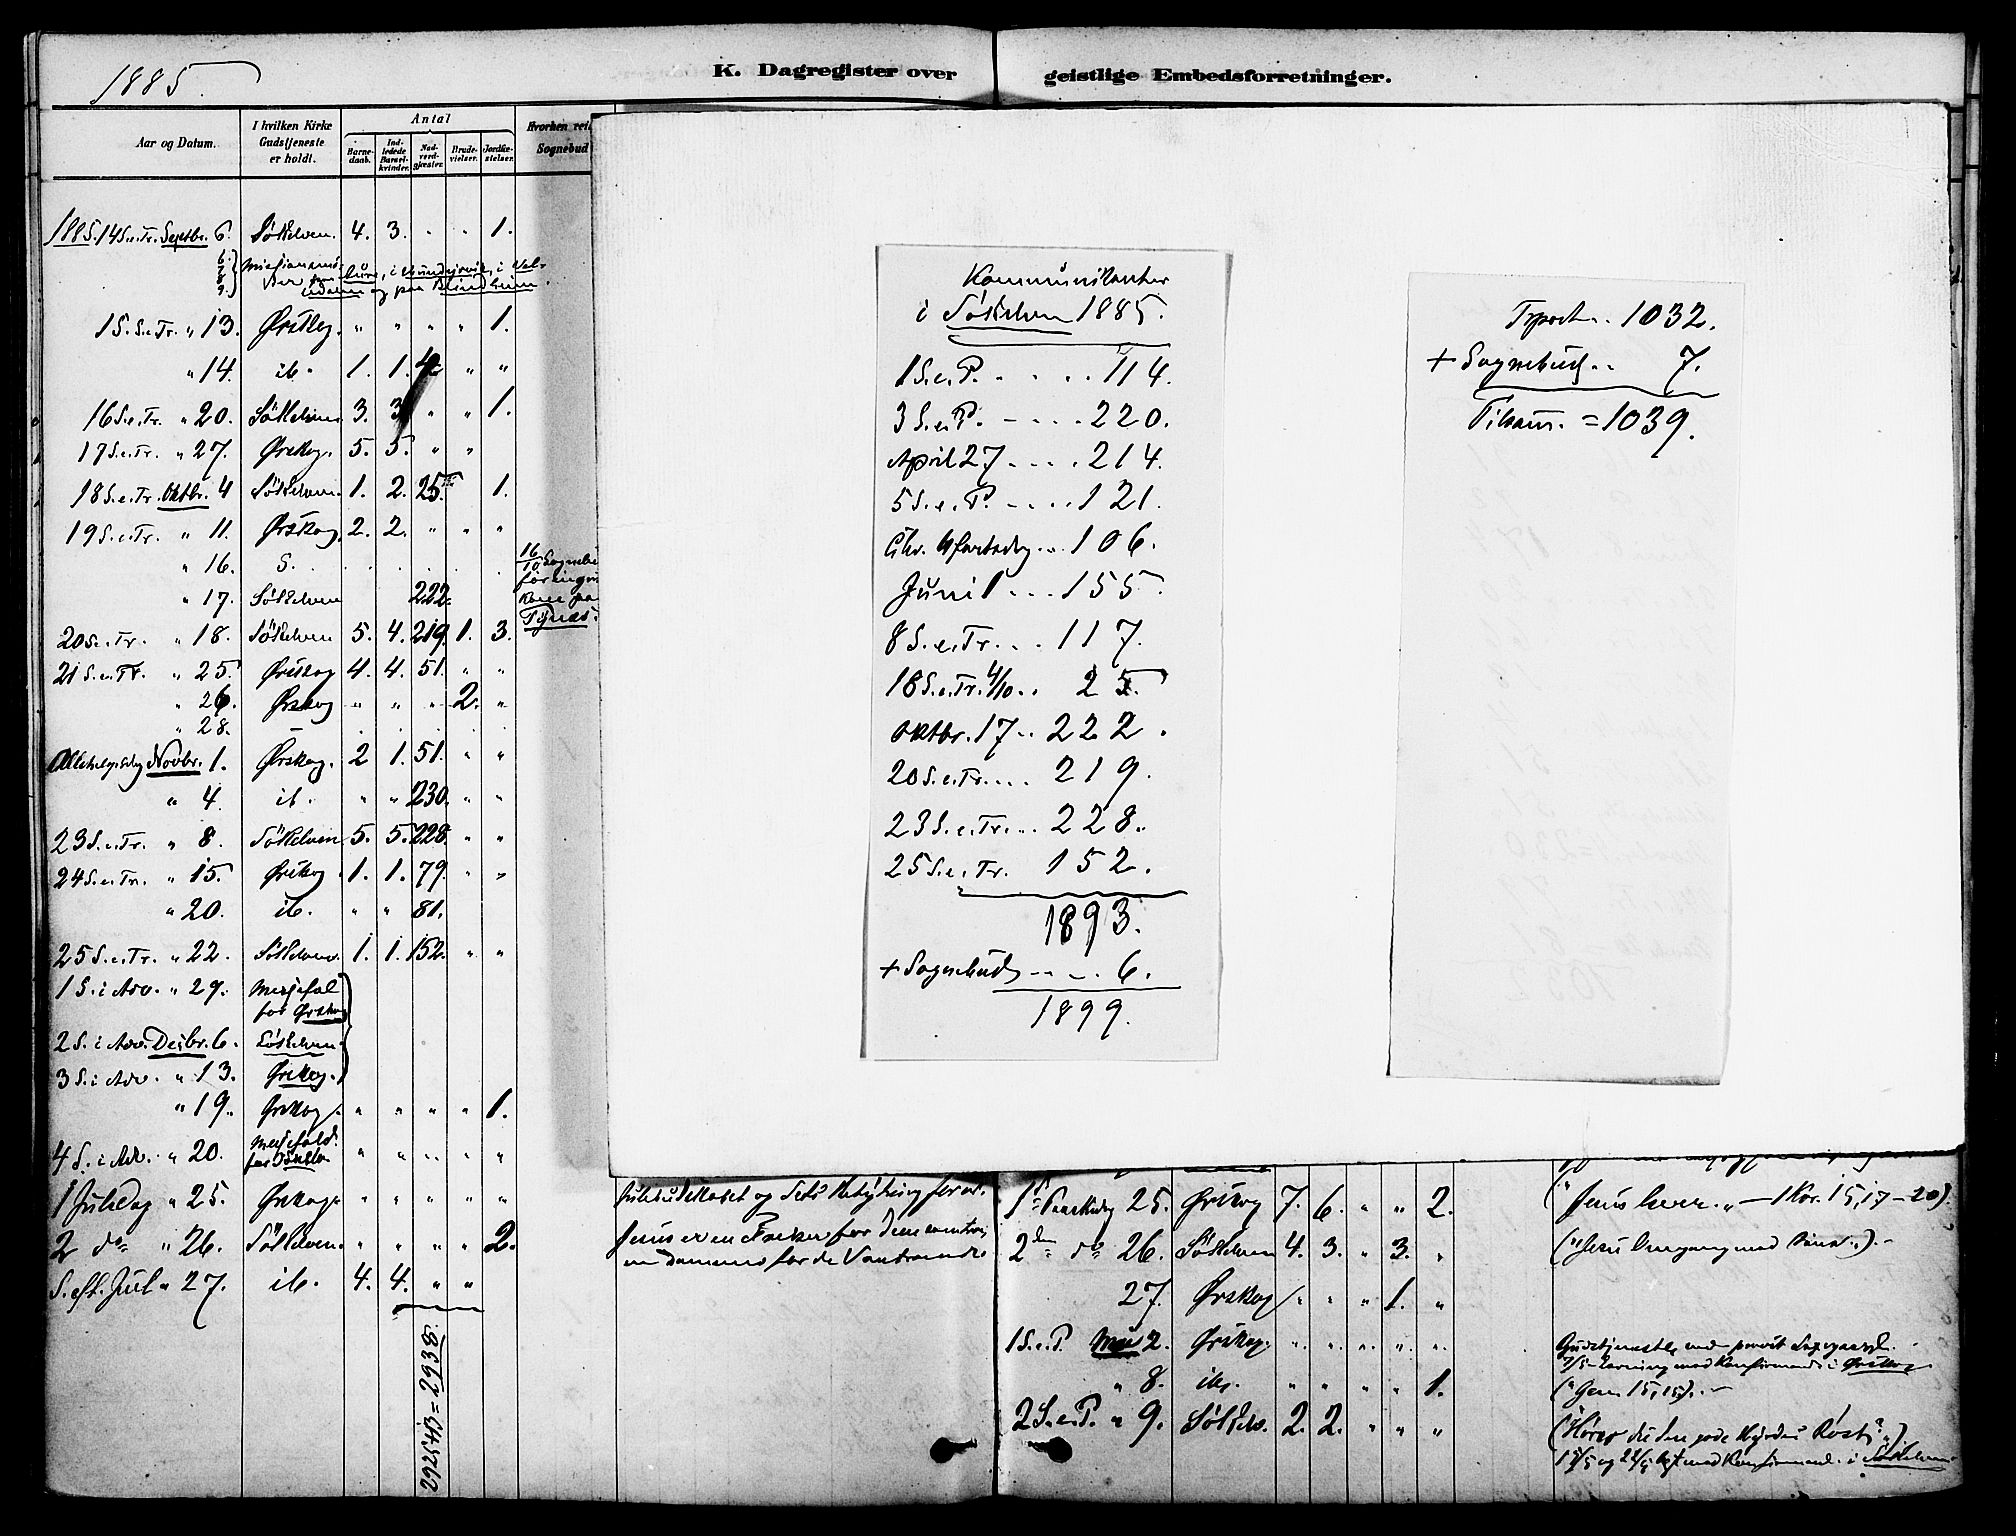 1885.
K. Dagregister over geistlige Embedsforretninger.
Aar og Datum.
I hvilken Kirke Gudstjeneste er holdt.
Antal
Barne-daab.
Ind-ledede Barsel-kvinder.
Nad-verd-gjæster.
Brude-vielser.
Jordfæ-stelser.
Sognebud
1885. 14 S. e. Tr. Septbr. 6. Søkelven. 4. 3. " " 1.
6. 7. 8. 9.
15. S. e. Tr. " 13. Ørskog. " " " " 1.
" 14. ib. 1. 1. 4. " "
16 S. e. Tr. " 20. Søkelven. 3. 3. " " 1.
17 S. e. Tr. " 27. Ørskog. 5. 5. " "
18 S. e. Tr. Oktbr. 4 Søkelven. 1. 2. 25. 1.
19 S. e. Tr. " 11. Ørskog. 2. 2. " " "
" 16. S.
16/10 Sognebud
" 17. Søkelven 222.
20 S. e. Tr. " 18. Søkelven 5. 4. 219. 1. 3.
21 S. e. Tr. " 25. Ørskog 4. 4. 51. " "
" 26. Ørskog " " " 2. "
" 28.
Allehelgsdag Novbr. 1. Ørskog. 2 1. 51. " "
" 4. ib. " " 230. " "
23 S. e. Tr. " 8. Søkelven 5. 5. 228. " "
24 S. e. Tr. " 15. Ørskog 1. 1. 79. " "
" 20. ib. " " 81.
25 S. e. Tr. " 22. Søkelven. 1. 1. 152. " "
1 S. i Adv. " 29. Messefal for Ørskog
2 S. i Adv. Decbr. 6. Søkelven.
3 S. i Adv. " 13. Ørskog.
" 19. Ørskog. " " " " 1.
4 S. i Adv. " 20. Messefald for " " " " "
1 Juledag " 25. Ørskog. " " " " "
2 do " 26. Søkelven. " " " " 2.
S. eft. Jul " 27. ib. 4. 4. " "
2925+13=2938.
Kommunikanter
i Søkelven 1885.
1 S. e. P. . . . . 114.
3 S. e. P. . . . . 220.
April 27 . . . . 214.
5 S. e. P. . . . . 121.
Chr. Hfartsdag . . . 106.
Juni 1 . . . 155.
8 S. e. Tr. . . . 117.
18 S. e. Tr. 4/10 . . 25.
Oktbr. 17 . . 222.
20 S. e. Tr. . . . 219.
23 S. e. Tr. . . . 228.
25 S. e. Tr. 152.
1893.
+ Sognebud . . . . 6.
1899.
Trport . . 1032.
+ Sognebud . . 7.
Tilsam. = 1039.
Jesus er en for den
en Dommer for de Vantroende
1ste Paaskedag 25. Ørskog 7. 6. " " 2.
("Jesus lever." — 1 Kor. 15,17–20).
2den do 26. Søkelven 4. 3. " 3. "
("Jesu Omgang med ").
27. Ørskog " " " 1. "
1 S. e. P. Mai 2. Ørskog. " " " " "
Gudstjeneste ved
7/5 Læsning med Konfirmand. i Ørskog
" 8. ib. " " " " 1.
("Gen. 15,15).
2 S. e. P. " 9. Søkelv. 2. 2. " " "
("Hører du den gode Hyrdes Røst?")
og med Konfirmand. i Søkelven